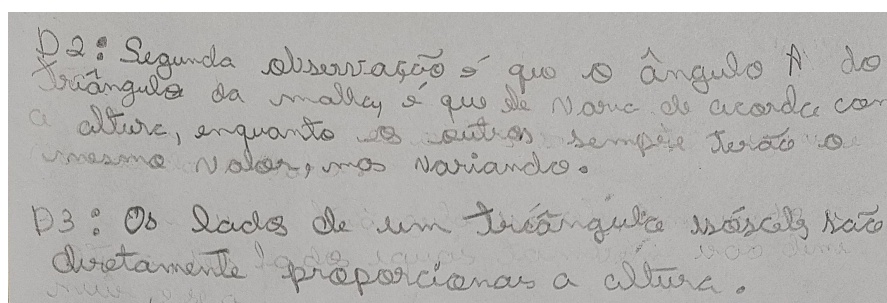 D2: Segunda observação é que o ângulo A do
triângulo da malha, é que ele varia de acordo com
a altura, enquanto os outros sempre terão o
mesmo valor, mas variando.
D3: Os lados de um triângulo isósceles são
diretamente proporcionas a altura.